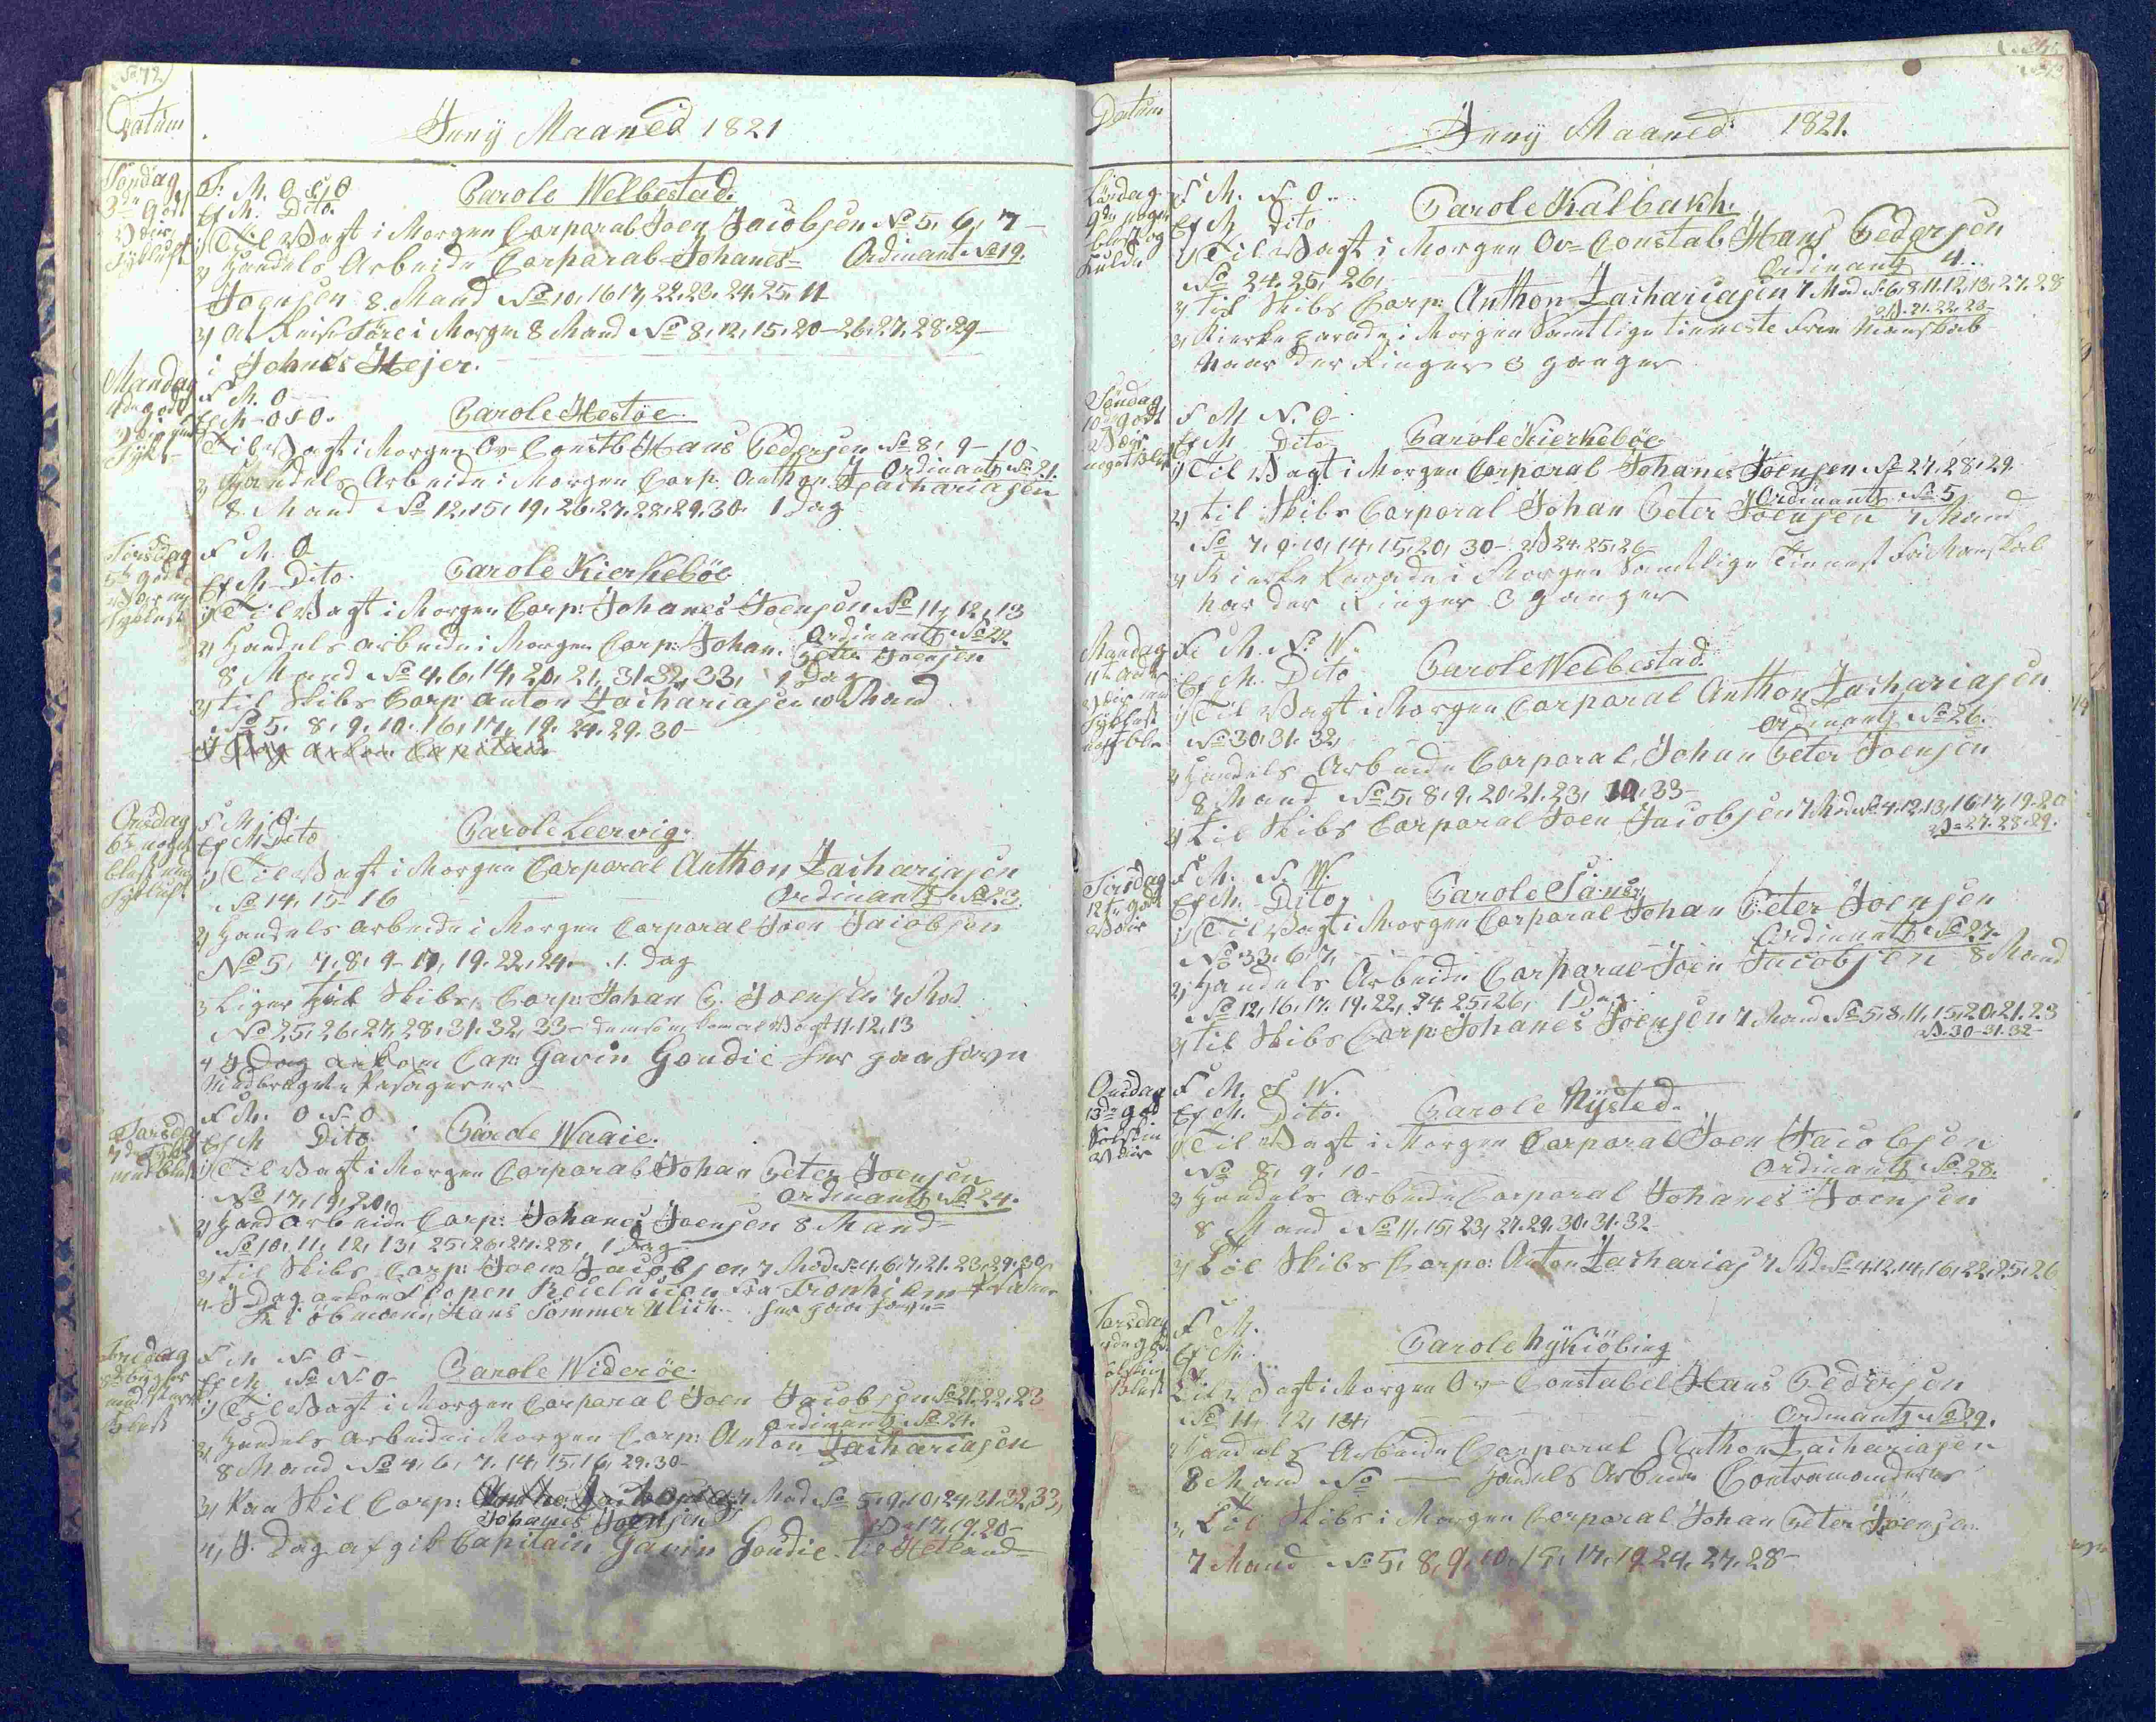 No 72
Datum
Juny Maaned 1821
Søndag
3de godt
Veir
Tykluft
F: M. O S O
Ef M. Dito.
Parole Welbestad.
1) Til Vagt i Morgen Corporal Joen Jacobsen No 5, 6, 7 -
2) Handels Arbeide Corporal Johanes=
Ordinants No 19.
Joensen 8 Mand No 10, 16 17, 22, 23, 24, 25, 11
3) At Reise Føre i Morgen 8 Mand No 8, 12, 15, 20 - 26, 27, 28, 29 -
i Johnes Hejer.
Mandag
4de godt
F M. O
Ef M - O S O.
Parole Hestøe.
Til Vagt i Morgen Ov= Constb Hans Pedersen No 8, 9 - 10
Ordinants No 21.
2) Handels Arbeide i Morgen Corp. Anthon Zachariasen
8 Mand No 12, 15, 19, 26, 27, 28, 29, 30. 1 Dag
Tirsdag
5te godt
F M. O
Ef M - Dito.
Parole Kierkebøe
1) Til Vagt i Morgen Corp: Johanes Joensen No 11, 12, 13
Ordinants No 22.
2) Handels arbeide i Morgen Corp: Johan Peter Joensen
8 Mand No 4, 6, 14, 20, 21, 31, 32, 33, 1 Dag
3) til Skibs Corp: Anton Zachariasen 10 Mand
No 5, 8, 9, 10, 16, 17, 19, 24, 29, 30 -
I Dag ankom Capitain
Onsdag
6te noget
blæst med
Tykluft
F M O.
Ef M Dito
Parole Leervig.
1) Til Vagt i Morgen Corporal Anthon Zachariasen
No 14, 15 - 16
Ordinants No 23.
2) Handels arbeide i Morgen Corporal Joen Jacobsen
No 5, 7, 8, 9 - 17, 19, 22, 24 - 1. Dag
3 Liger til Skibs, Corp: Johan P. Joensen 7 Md
No 25, 26, 27, 28, 31, 32, 33 - demsom kom af Vagt 11. 12, 13
4 I Dag ankom Cap: Gavin Goudie her paa havn
Medbragte Pasagerer -
Torsdag
7de Tyk
med blæst
F M. O N O
Ef M Dito
Parole Waaie.
1) Til Vagt i Morgen Corporal Johan Peter Joensen
No 17, 19, 20,
Ordinants No 24.
2) Hand arbeide Corp: Johanes Joensen 8 Mand -
No 10, 11, 12, 13, 25, 26, 27, 28, 1 Dag
3) til Skibs Corp: Joen Jacobsen 7 Md No 4, 6, 7, 21, 23, 29, 30
4 I Dag ankom Slopen fra Tronhiem
Kiøbmand, Hans Sommer Ulich. her paa havn=
Fredag
8de byger
med sterk
blæst
F M N O -
Ef M No N. O -
Parole Widerøe.
1) Til Vagt i Morgen Corporal Joen Jacobsen No 21, 22, 23
Ordinants No 24.
2) Handels Arbeide i Morgen Corp: Anton Zachariasen
8 Mand No 4, 6, 7, 14, 15, 16, 29, 30 -
3) Paa Skib Corp: 7 Md No 5, 9, 10, 24, 31, 32, 33,
Johanes Joensen
V= 17, 19, 20 -
4, I Dag afgik Capitain Gavin Goudie til Hetland=
Datum
Juny Maaned 1821.
Lørdag
9de noget
blæst og
kulde
F M. N. O -
Ef M Dito
Parole Kalbakh.
1) Til Vagt i Morgen Ov= Constab Hans Pedersen
No 24, 25, 26,
Ordinants 4 -
2) til Skibs Corp: Anthon Zachariasen 7 Md No 6, 8, 11, 12, 13, 27, 28
V. 21. 22. 23 -
3) Kierkeparade i Morgen Samtlige tieneste Frie Manskab -
Naar der Ringes 3 ganger
Søndag
10de godt
Veir
noget blæst
F M N. O -
Ef M Dito
Parole Kierkebøe
1) Til Vagt i Morgen Corporal Johanes Joensen No 27, 28, 29.
Ordinants No 5
2) til Skibs Corporal Johan Peter Joensen 7 Mand
No 7, 9, 10, 14, 15, 20, 30 - V 24. 25, 26
3) Kierke Parade i Morgen Samtlige Tienest Fri Manskab
har der Ringes 3 ganger
Mandag
F. M. N. W.
Ef M. Dito
Parole Welbestad.
1) Til Vagt i Morgen Corporal Anthon Zachariasen
No 30, 31. 32,
Ordinants No 26.
2) Handels Arbeide Corporal, Johan Peter Joensen
8 Mand No 5, 8, 9, 20, 21, 23, 10, 33 -
3) til Skibs Corporal Joen Jacobsen 7 Md No 4, 12, 13, 16, 17, 19 - 20
V= 27. 28. 29.
Tirsdag
12te godt
Veir
F M. N. W.
Ef M. Dito
Parole Sanøe
1) Til Vagt i Morgen Corporal Johan Peter Joensen
No 33, 6, 7,
Ordinants No 27.
2) Handels Arbeide Corporal Joen Jacobsen 8 Mand
No 12, 16, 17, 19, 22, 24, 25, 26, 1 Dag.
3) til Skibs Corp: Johanes Joensen 7 Mand No 5, 8, 11, 15, 20, 21, 23
V. 30 - 31. 32 -
Onsdag
13de god
Solskin
Veir
F M. S W.
Ef M. Dito.
Parole Nysted.
1) Til Vagt i Morgen Corporal Joen Jacobsen
No 8, 9, 10 -
Ordinants No 28.
2) Handels arbeide Corporal Johanes Joensen
8 Mand No 11, 15, 23, 27, 29, 30, 31. 32 -
3) til Skibs Corpo: Anton Zacharias 7 Md No 4, 12, 14, 16, 22, 25, 26
Torsdag
F M.
Ef M.
Parole Nykiøbing
Til Vagt i Morgen Ov= Constabel Hans Pedersen
No 11, 12, 14.
Ordinants No 29.
2) Handels Arbeide Corporal Anthon Zachariasen
8 Mand No — Handels Arbeide Contramanderes
3, til Skibs i Morgen Corporal Johan Peter Joensen
7 Mand No 5, 8, 9, 10, 15, 17, 19 24, 27, 28 -